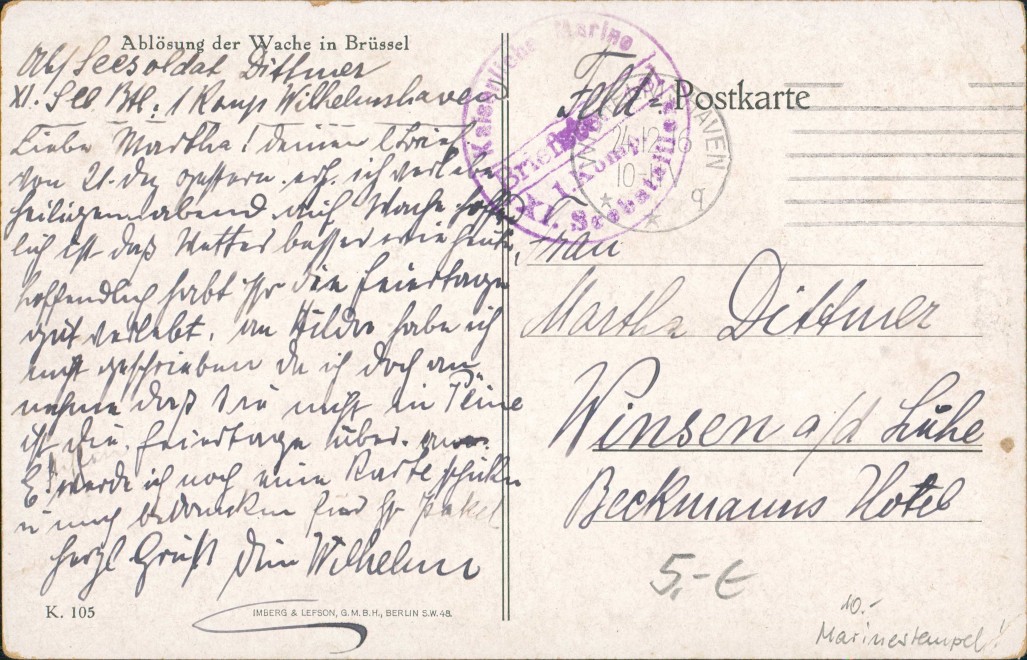 Ablösung der Wache in Brüssel
Abs/ Seesoldat Dittmer
XI. See Btl. 1 Komp Wilhelmshaven
Liebe Martha! deinen l Brief
von 21. Dez gestern erh. ich verlebe
heiligenabend auf Wache hoffent
lich ist daß Wetter besser wie heute,
hoffendlich habt Ihr die Feiertage
gut verlebt, an Hilda habe ich
nicht geschrieben da ich doch an
nehme daß sie nicht in Peine
ist die Feiertage über.
E. werde ich noch eine Karte schicken
u mich bedanken für Ihr Paket
herzl Gruß Dein Wilhelm
K. 105
IMBERG & LEFSON, G.M.B.H., BERLIN S.W. 48.
Kaiserliche Marine
Briefst
1. Komp
XI. Seebataillon
WILHELMSHAVEN
24.12.16
10-
* * q
Feld = Postkarte
Frau
Martha Dittmer
Winsen a/d Luhe
Beckmanns Hotel
5,- €
10.-
Marinestempel!